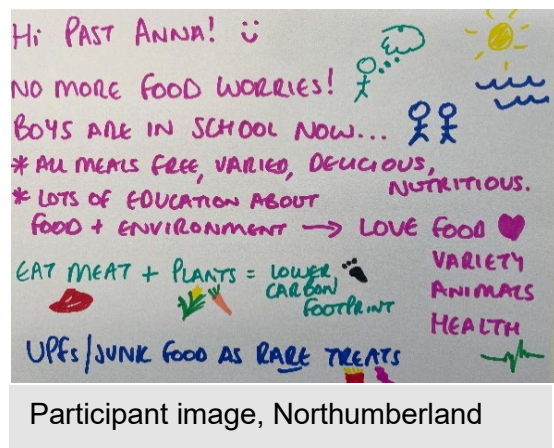 Hi PAST ANNA!
NO MORE FOOD WORRIES!
BOYS ARE IN SCHOOL NOW...
* ALL MEALS FREE, VARIED, DELICIOUS,
NUTRITIOUS.
* LOTS OF EDUCATION ABOUT
FOOD + ENVIRONMENT → LOVE FOOD
VARIETY
ANIMALS
HEALTH
EAT MEAT + PLANTS = LOWER
CARBON
FOOTPRINT
UPFs/JUNK FOOD AS RARE TREATS
Participant image, Northumberland